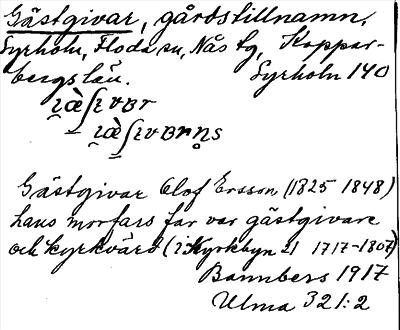 Gästgivar, gårdstillnamn,
Syrholn, Floda sn, Nås tg, Koppar-
bergslän. Syrholn 140
Gästgivar Olof Ersson (1825 1848)
hans morfars far var gästgivare
och kyrkvärd (i Kyrkbyn 21 1717-1807)
Bannbers 1917
Ulma 321:2